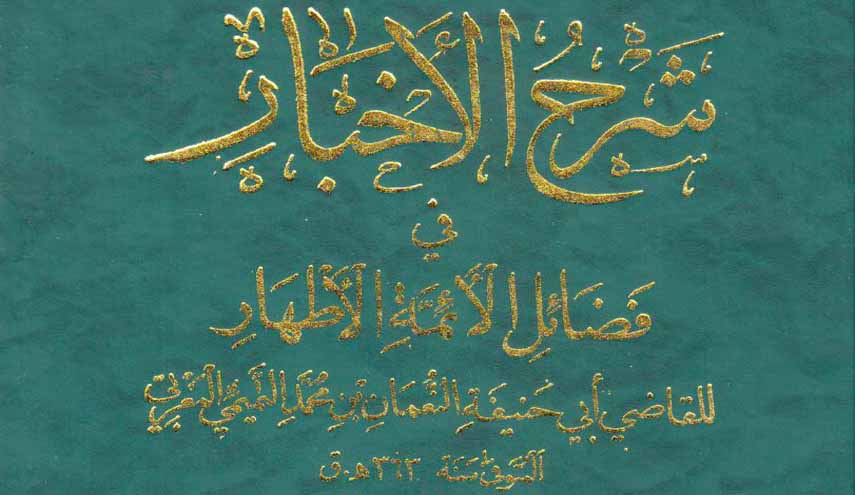 شَرْحُ الأَخْبَارِ
في
فَضَائِلِ الأَئِمَّةِ الأَطْهَارِ
للقاضي أبي حَنيفَةِ النُّعمَانِ بْنِ مُحَمَّد التَّميْميّ المَغربيّ
المتوفى سَنَة ٣٦٣ هـ.ق